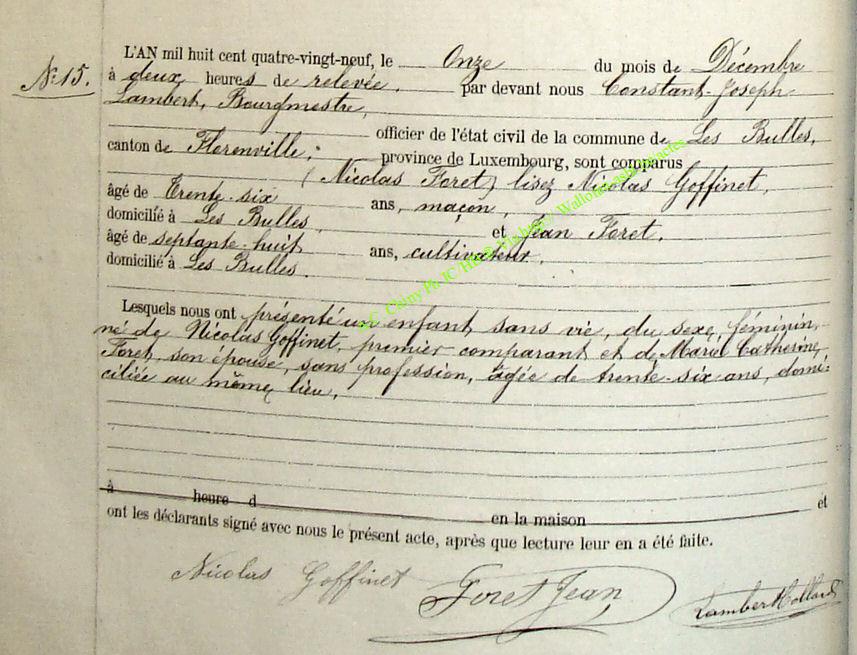 N° 15.
L'AN mil huit cent quatre-vingt-neuf, le Onze du mois de Décembre
à deux heures de relevée, par devant nous Constant-Joseph
Lambert, Bourgmestre,
officier de l'état civil de la commune de Les Bulles,
canton de Florenville, province de Luxembourg, sont comparus
(Nicolas Foret) lisez Nicolas Goffinet,
âgé de Trente-six ans, maçon,
domicilié à Les Bulles, et Jean Foret,
âgé de septante-huit ans, cultivateur,
domicilié à Les Bulles.
Lesquels nous ont présenté un enfant sans vie, du sexe féminin,
né de Nicolas Goffinet, premier comparant et de Marie Catherine
Foret, son épouse, sans profession, âgée de trente-six ans, domi-
ciliée au même lieu.
à heure d en la maison et
ont les déclarants signé avec nous le présent acte, après que lecture leur en a été faite.
Nicolas Goffinet Foret Jean Lambert